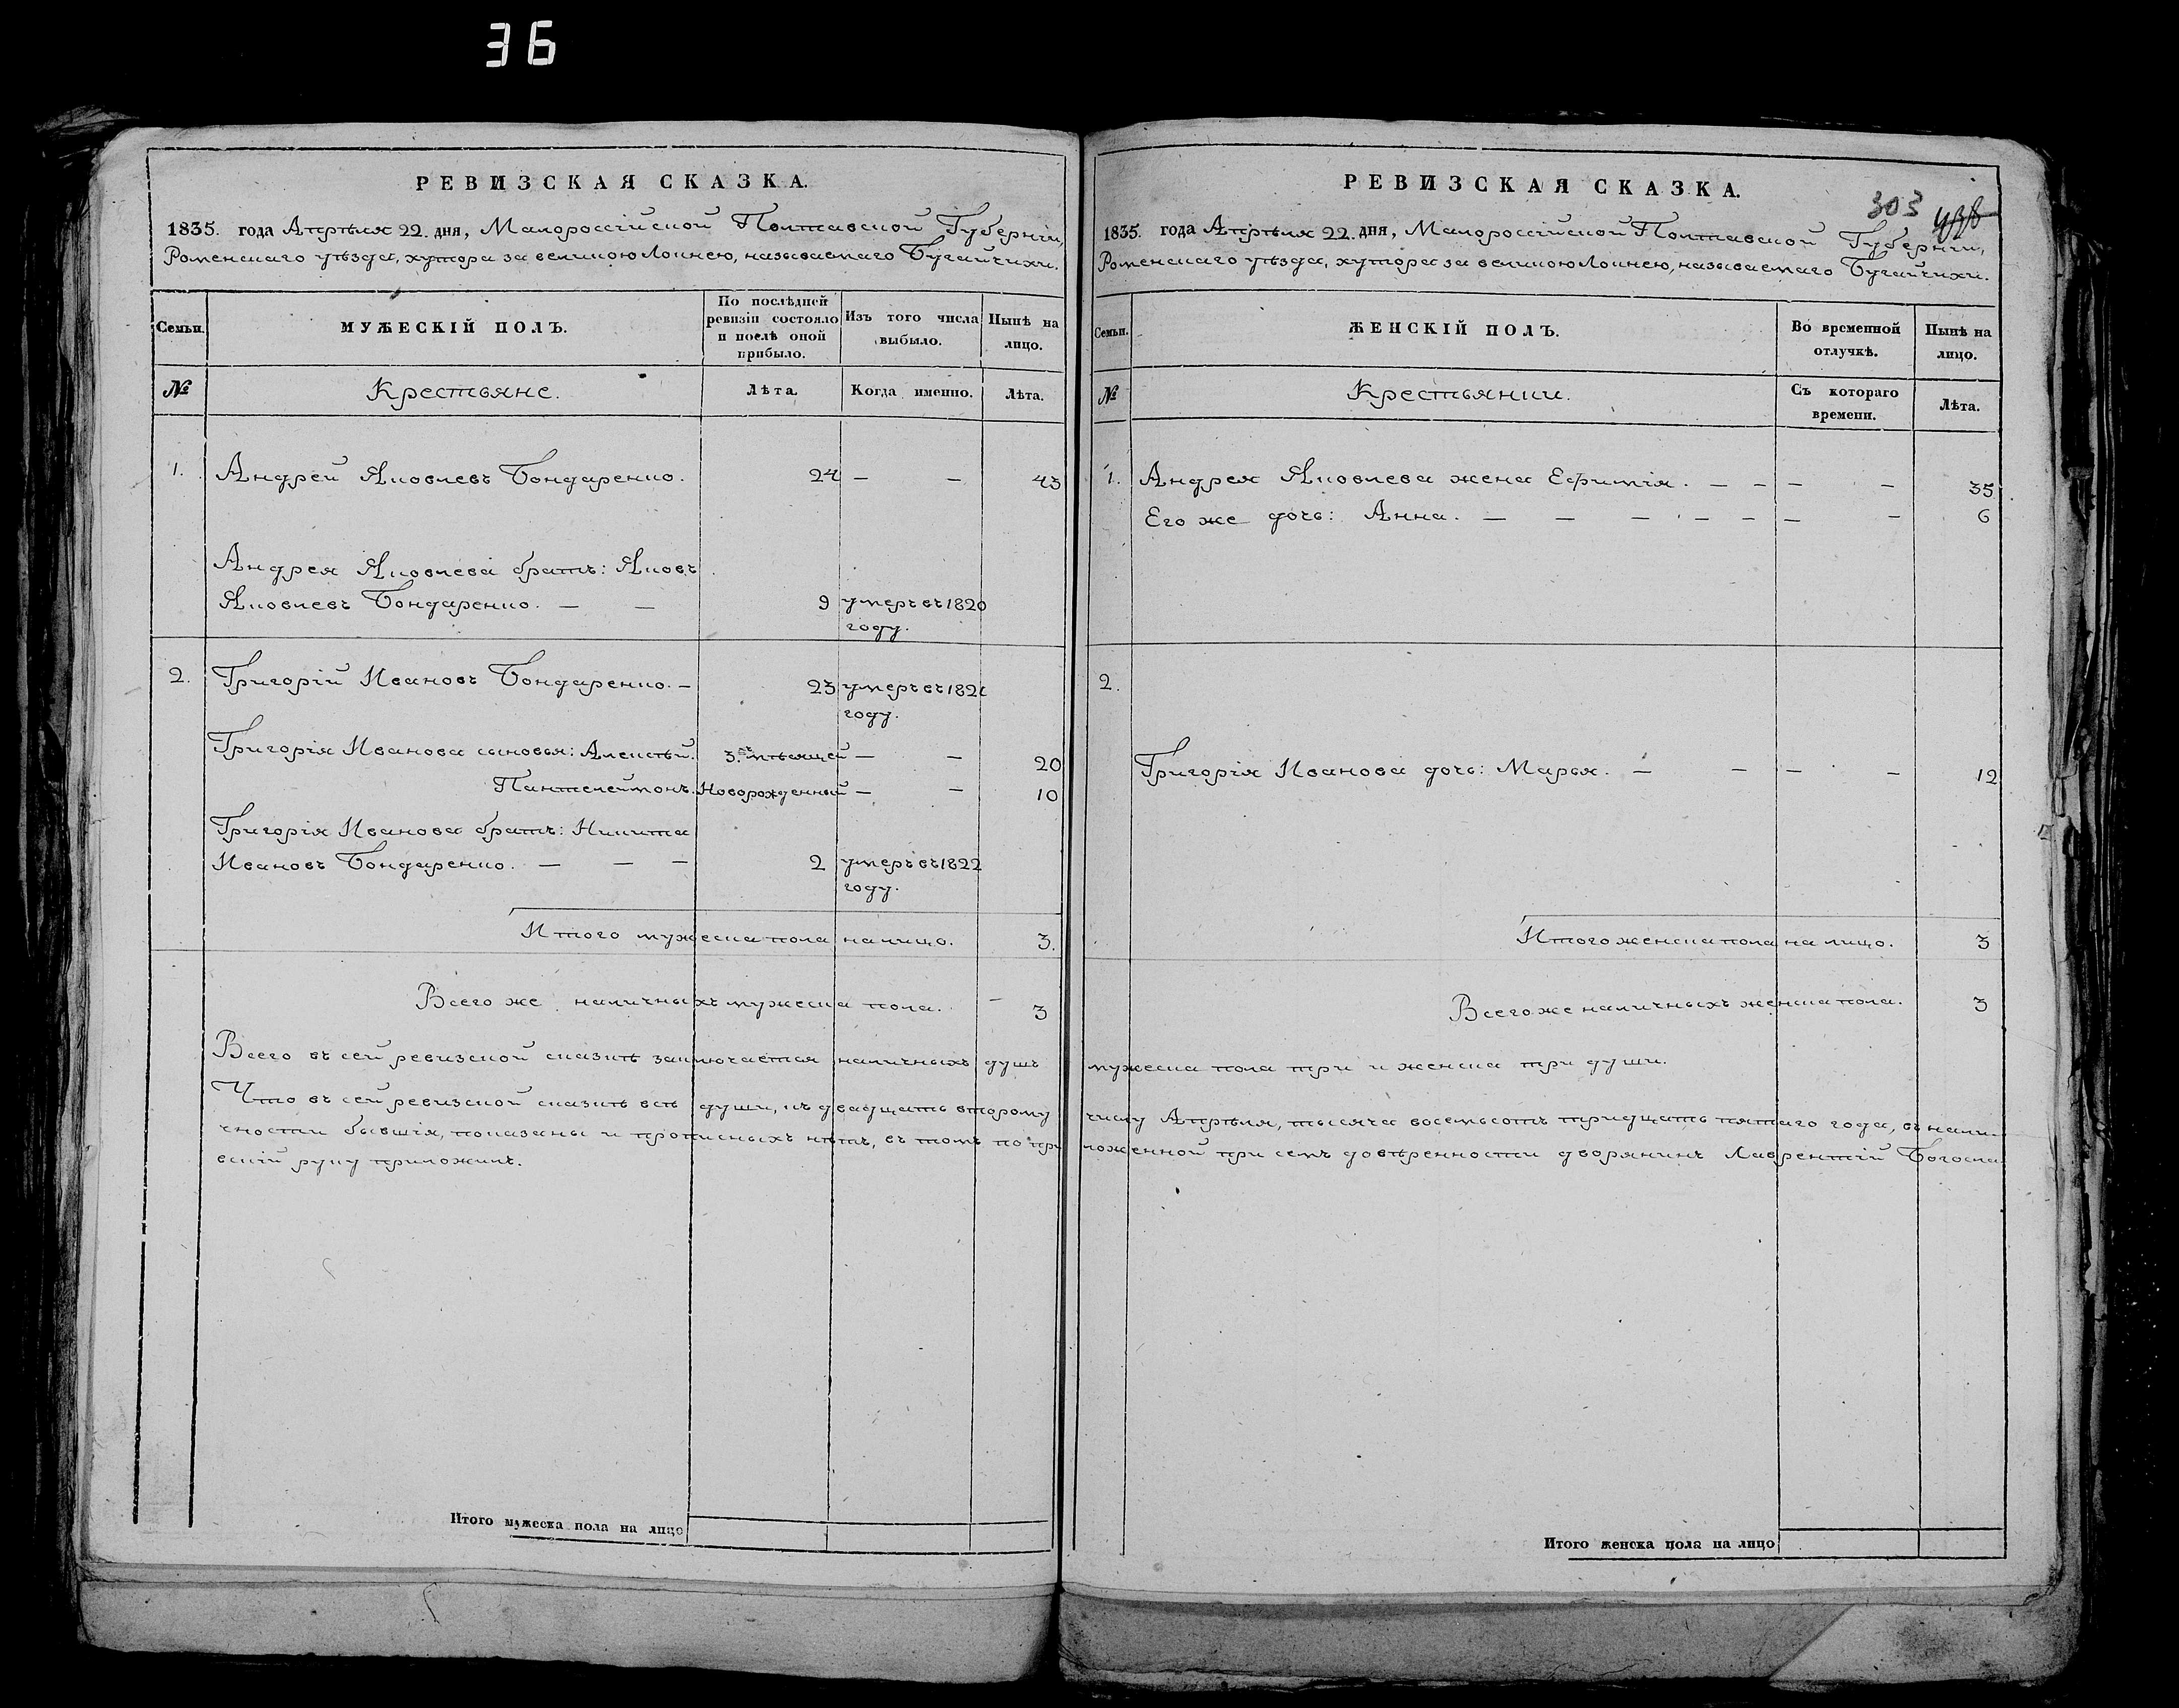 36
РЕВИЗСКАЯ СКАЗКА.
1835. года Апрѣля 22. дня, Малороссійской Полтавской Губерніи,
Роменскаго уѣзда, хутора за великою Лоинею, называемаго Бугаичихи.
Семьи.
МУЖЕСКІЙ ПОЛЪ.
По послѣдней ревизіи состояло и послѣ оной прибыло.
Изъ того числа выбыло.
Нынѣ на лицо.
№
Крестьяне.
Лѣта.
Когда именно.
Лѣта.
1. Андрей Яковлевъ Бондаренко. 24 — — 43
Андрея Яковлева братъ: Яковъ
Яковлевъ Бондаренко. — — 9 умеръ въ 1820
году.
2. Григорій Ивановъ Бондаренко. — 23 умеръ въ 1821
году.
Григорія Иванова сыновья: Алексѣй. 3.хъ мѣсяцей — — 20
Пантелеймонъ. Новорожденный — — 10
Григорія Иванова братъ: Никита
Ивановъ Бондаренко. — — — 2 умеръ въ 1822
году.
Итого мужеска пола на лицо. 3.
Всего же наличныхъ мужеска пола. — 3
Всего въ сей ревизской сказкѣ заключается наличныхъ душъ
Что въ сей ревизской сказкѣ всѣ души, къ двадцать второму
чности бывшія, показаны и прописныхъ нѣтъ, въ томъ по при
вскій руку приложилъ.
Итого мужеска пола на лицо
РЕВИЗСКАЯ СКАЗКА.
303 438
1835. года Апрѣля 22. дня, Малороссійской Полтавской Губерніи,
Роменскаго уѣзда, хутора за великою Лоинею, называемаго Бугаичихи.
Семьи.
ЖЕНСКІЙ ПОЛЪ.
Во временной отлучкѣ.
Нынѣ на лицо.
№
Крестьянки.
Съ котораго времени.
Лѣта.
1. Андрея Яковлева жена Ефимія. — — — — 35
Его же дочь: Анна. — — — — — — — 6
2.
Григорія Иванова дочь: Марья. — — — — 12
Итого женска пола на лицо. 3
Всего же наличныхъ женска пола. 3
мужеска пола три и женска три души.
числу Апрѣля, тысяча восемьсотъ тридцать пятаго года, въ нали-
ложенной при семъ довѣренности дворянинъ Лаврентій Богоска
Итого женска пола на лицо